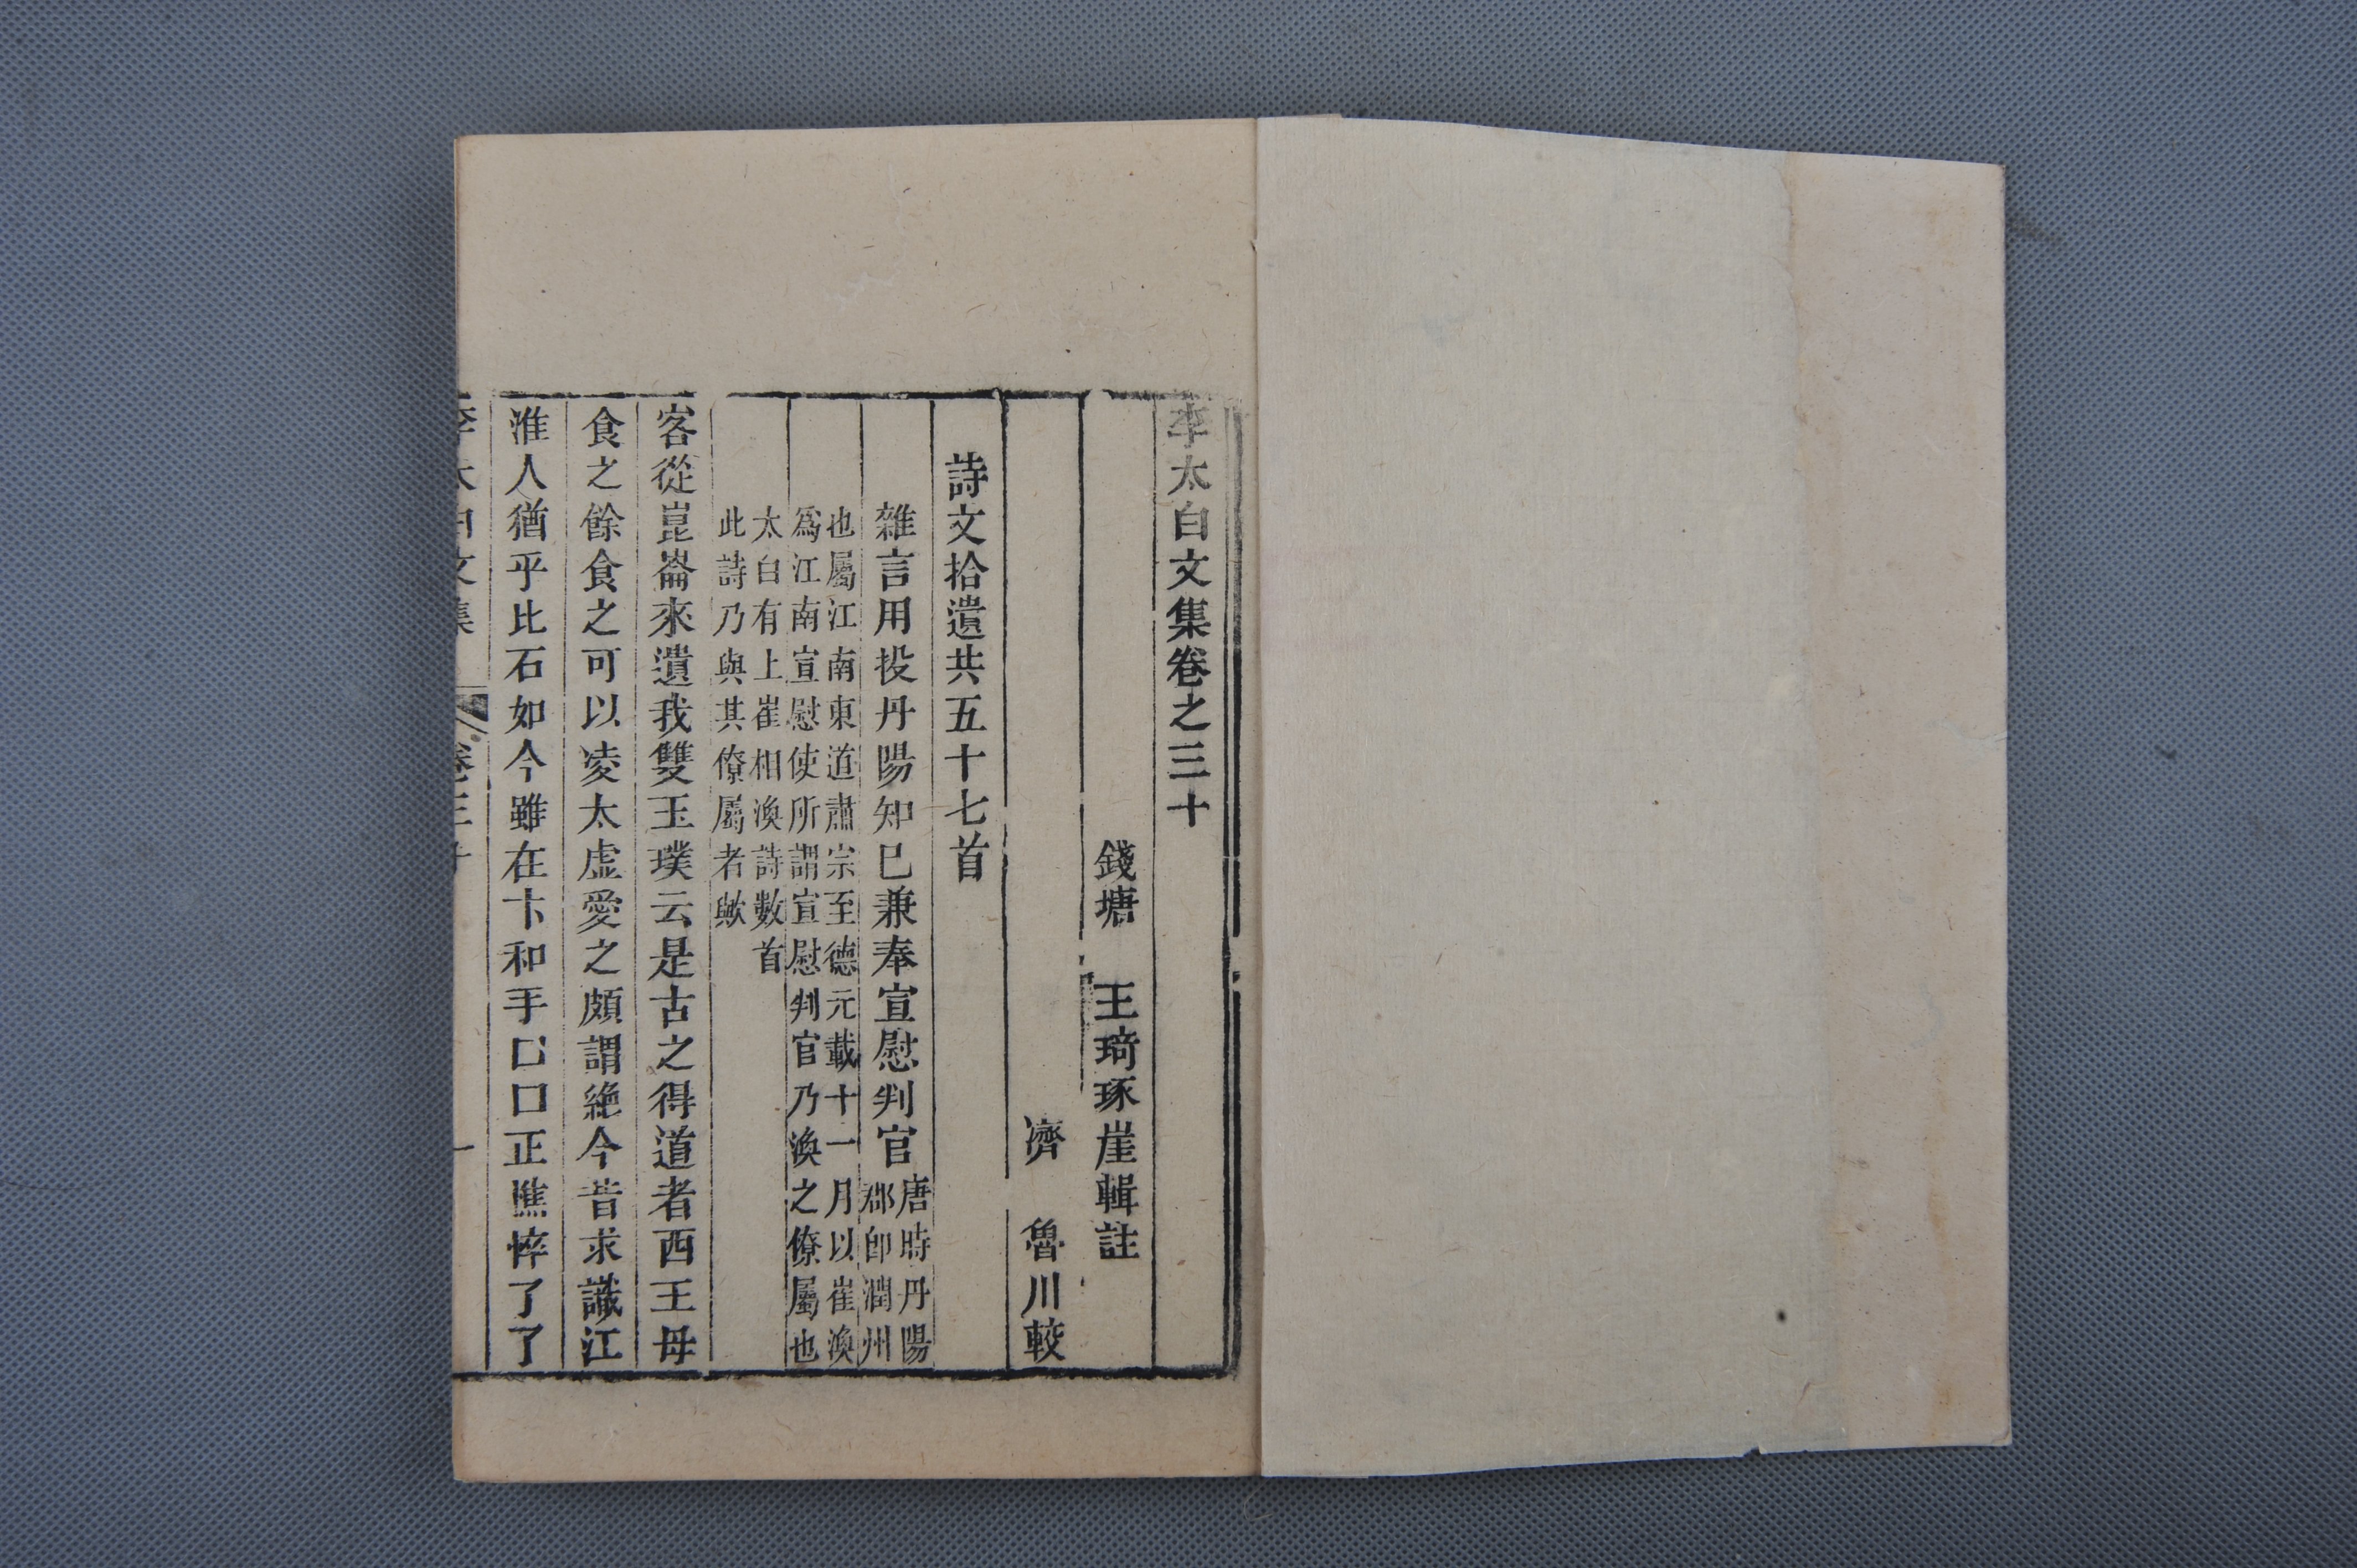 李太白文集卷之三十
錢塘 王琦琢崖輯註
濟 魯川較
詩文拾遺共五十七首
雜言用投丹陽知已兼奉宣慰判官
唐時丹陽
郡卽潤州
也屬江南東道肅宗至德元載十一月以崔渙
爲江南宣慰使所謂宣慰判官乃渙之僚屬也
太白有上崔相渙詩數首
此詩乃與其僚屬者歟
客從崑崙來遺我雙玉璞云是古之得道者西王母
食之餘食之可以凌太虛愛之頗謂絶今昔求識江
淮人猶乎比石如今雖在卞和手口口正憔悴了了
李太白文集 卷三十 一